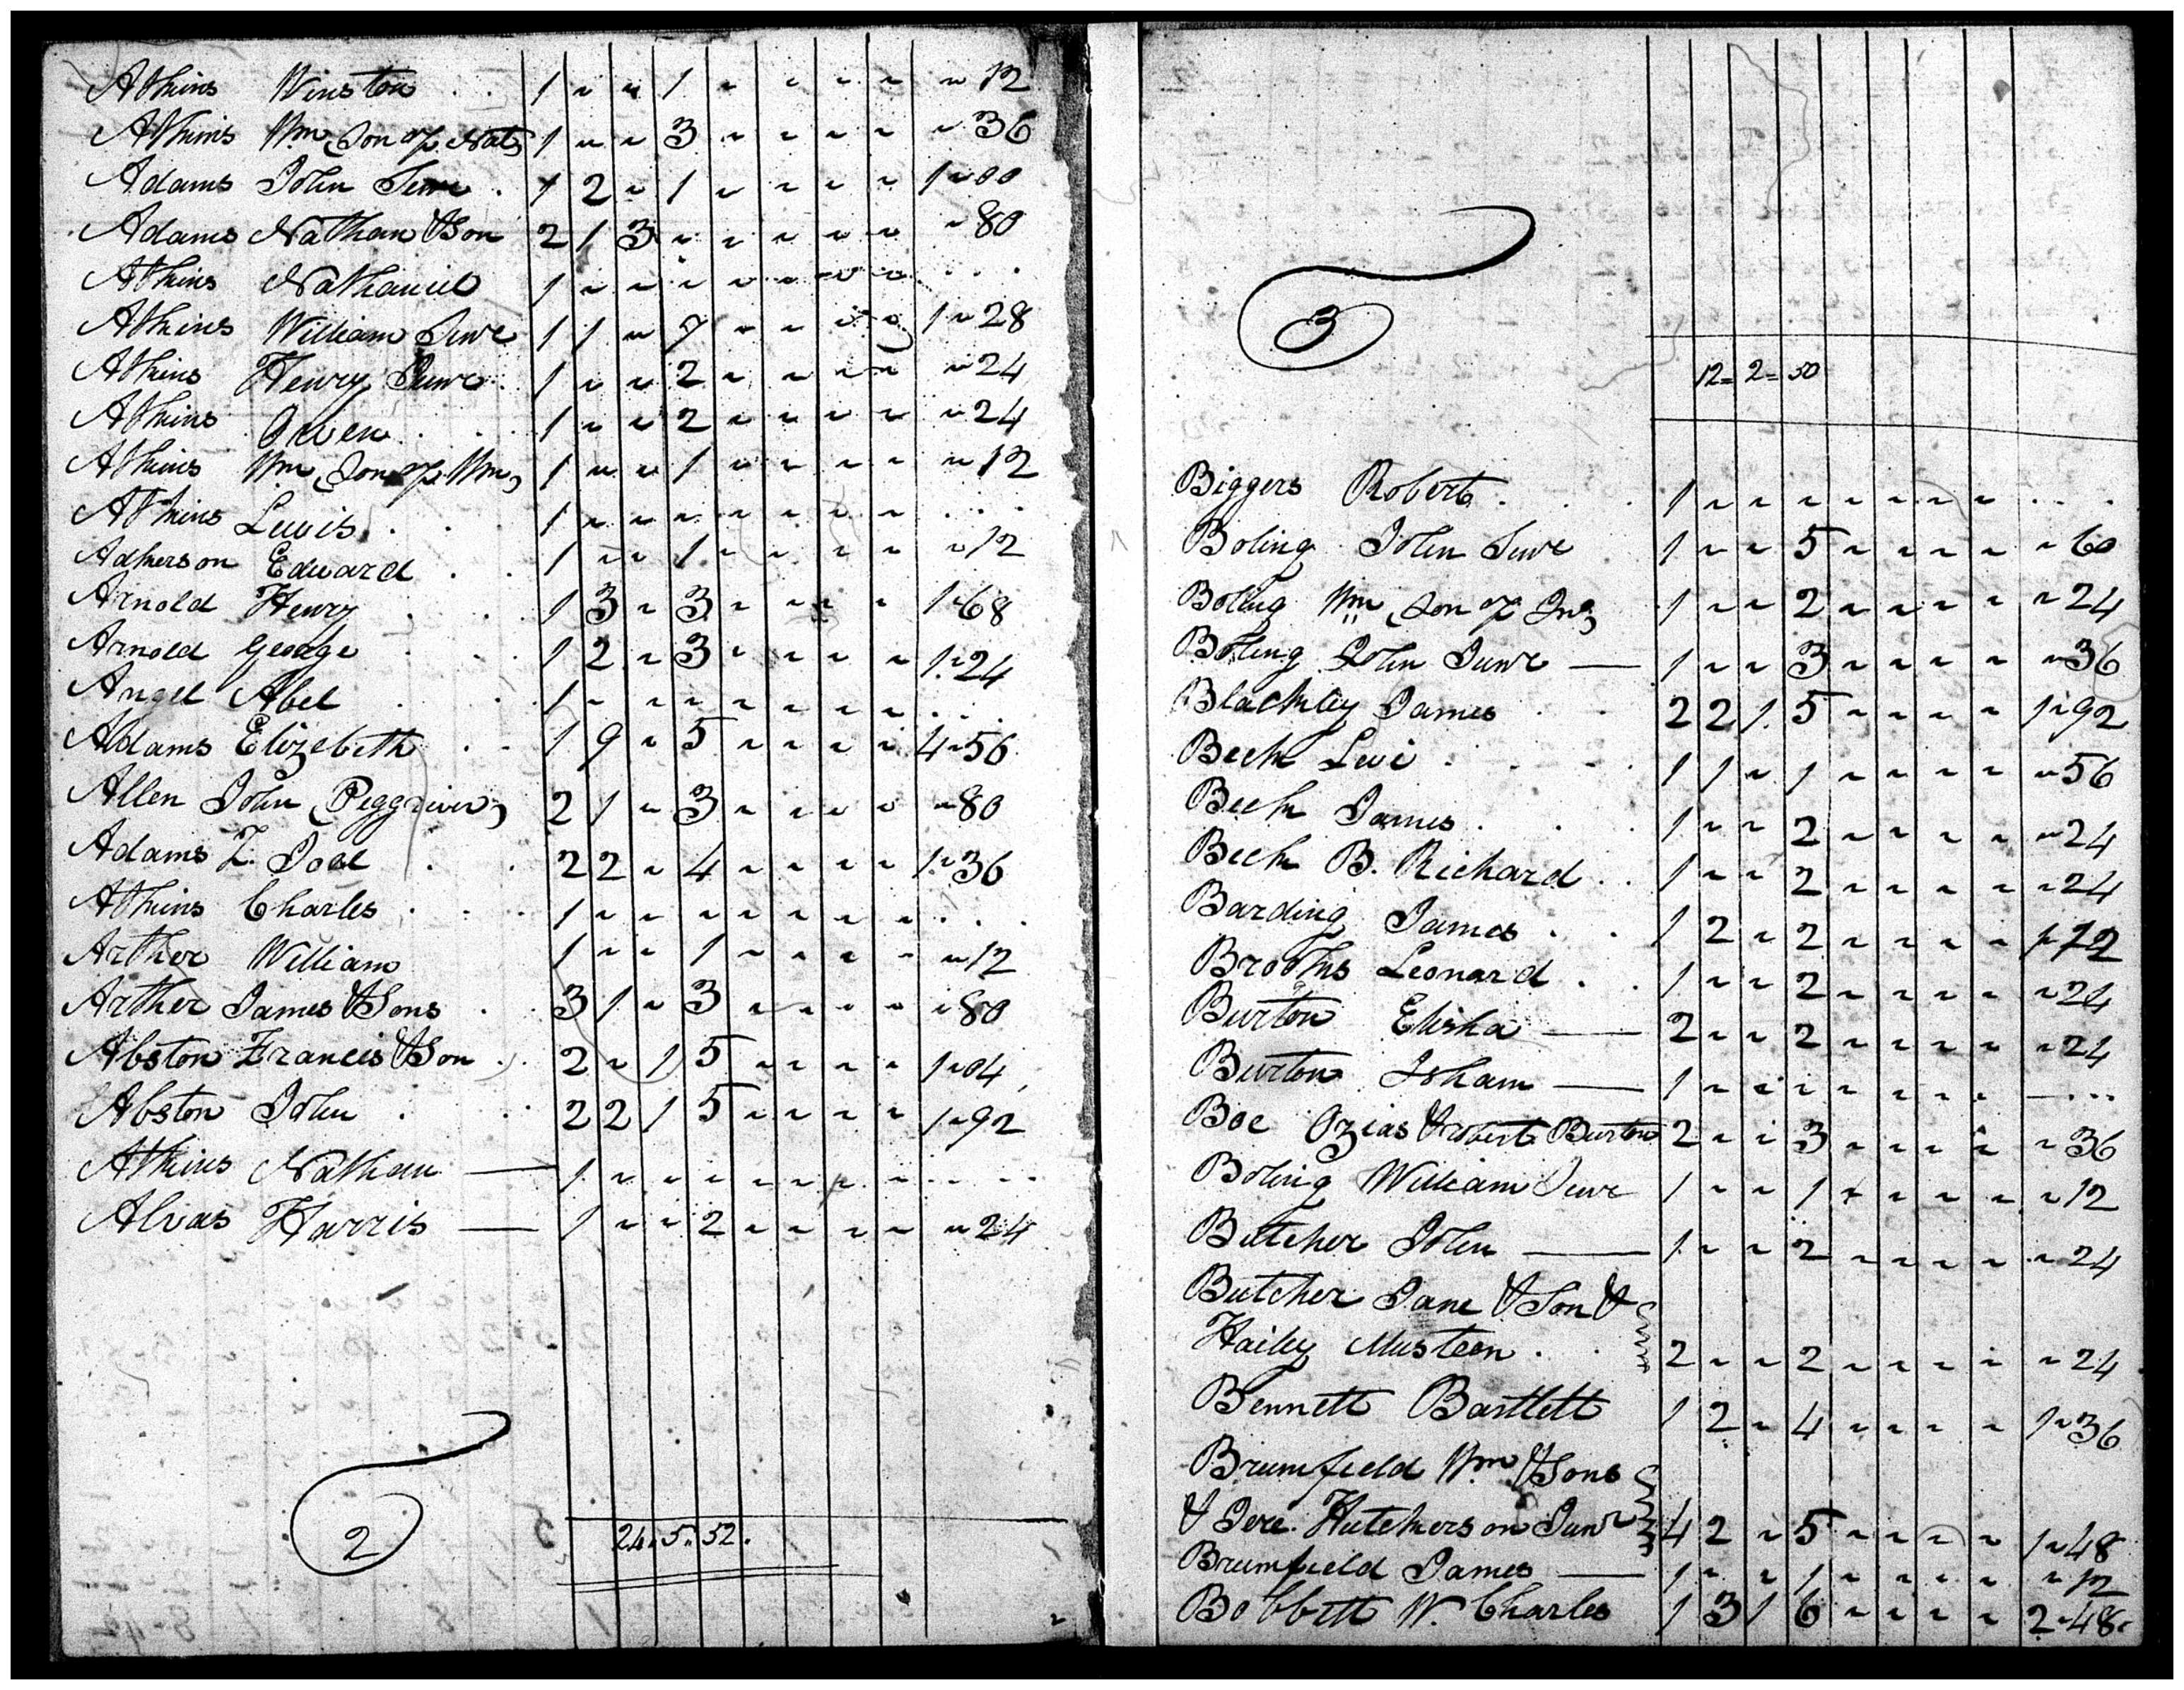 Atkins Winston . . 1 " " 1 " " " " " 12
Atkins Wm (Son of Nat) 1 " " 3 " " " " " 36
Adams John Senr . 1 2 " 1 " " " " 1 " 00
Adams Nathan & Son 2 1 3 " " " " " " 80
Atkins Nathaniel 1 " " " " " " " . . .
Atkins William Senr 1 1 " 7 " " " " 1 " 28
Atkins Henry Junr . 1 " " 2 " " " " " 24
Atkins Owen . . 1 " " 2 " " " " " 24
Atkins Wm (Son of Wm) 1 " " 1 " " " " " 12
Atkins Lewis . . 1 " " " " " " " . . .
Adkerson Edward . . 1 " " 1 " " " " " 12
Arnold Henry . . 1 3 " 3 " " " " 1 " 68
Arnold George . . 1 2 " 3 " " " " 1 " 24
Angel Abel . . 1 " " " " " " " . . .
Adams Elizebeth . . 1 9 " 5 " " " " 4 " 56
Allen John (Piggriver) 2 1 " 3 " " " " " 80
Adams F. Joel . . 2 2 " 4 " " " " 1 " 36
Atkins Charles . . . 1 " " " " " " " . . .
Arther William 1 " " 1 " " " " " 12
Arther James & Sons . 3 1 " 3 " " " " " 80
Abston Francis & Son . 2 " 1 5 " " " " 1 " 04
Abston John . . 2 2 1 5 " " " " 1 " 92
Atkins Nathan — 1 " " " " " " " . . .
Alvas Harris — 1 " " 2 " " " " " 24
2
24 " 5 " 52 .
3
12 = 2 = 50
Biggers Robert . . . 1 " " " " " " " . . .
Boling John Senr 1 " " 5 " " " " " 60
Boling Wm (Son of Jno) 1 " " 2 " " " " " 24
Boling John Junr — 1 " " 3 " " " " " 36
Blackley James . . 2 2 1 5 " " " " 1 " 92
Beck Levi . . . 1 1 " 1 " " " " " 56
Beck James . . . 1 " " 2 " " " " " 24
Beck B. Richard . . 1 " " 2 " " " " " 24
Barding James . . 1 2 " 2 " " " " 1 " 12
Brooks Leonard . . 1 " " 2 " " " " " 24
Burton Elisha — 2 " " 2 " " " " " 24
Burton Isham — 1 " " " " " " " — . . .
Boe Ozias & Robert Burton 2 " " 3 " " " " " 36
Boling William Junr 1 " " 1 " " " " " 12
Butcher John — 1 " " 2 " " " " " 24
Butcher Jane & Son &
Hailey Musteen . . 2 " " 2 " " " " " 24
Bennett Bartlett 1 2 " 4 " " " " 1 " 36
Brumfield Wm & Sons
& Jere. Hutcherson Junr 4 2 " 5 " " " " 1 " 48
Brumfield James — 1 " " 1 " " " " " 12
Bobbett W. Charles 1 3 1 6 " " " " 2 " 48